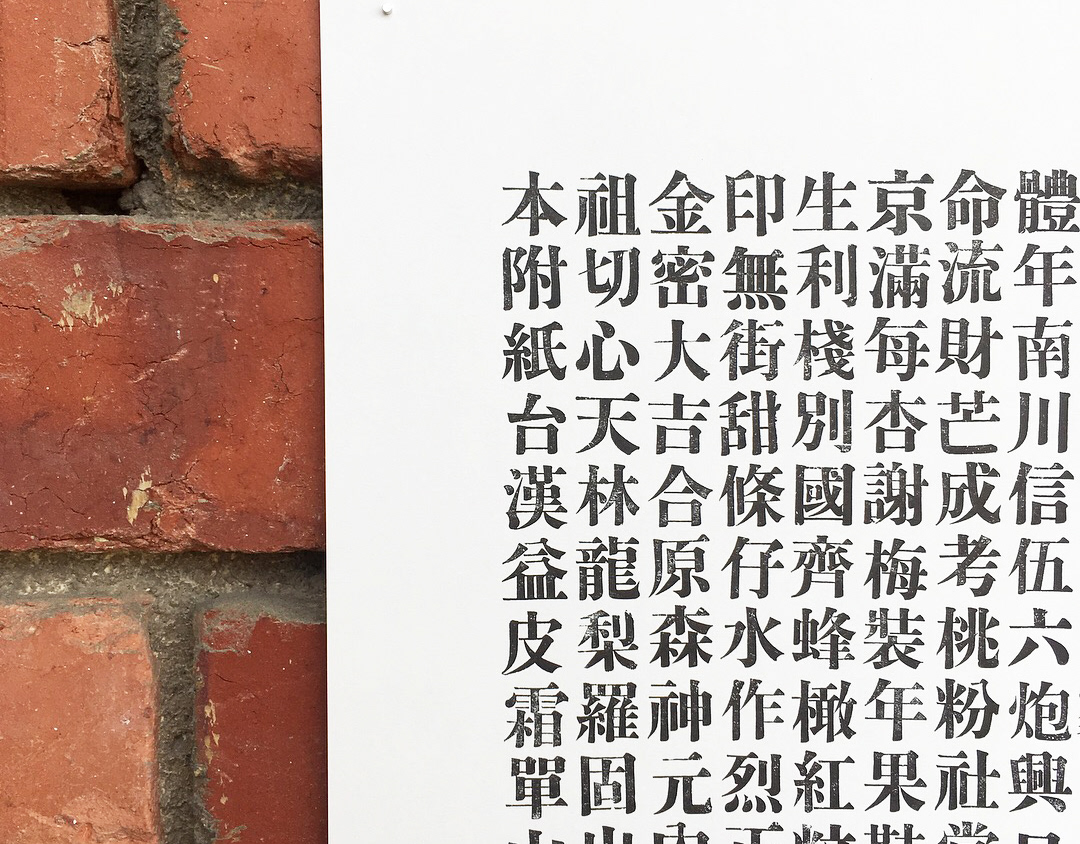 本祖金印生京命體
附切密無利滿流年
紙心大街棧每財南
台天吉甜別杏芒川
漢林合條國謝成信
益龍原仔齊梅考伍
皮梨森水蜂裝桃六
霜羅神作橄年粉炮
單固元烈紅果社興